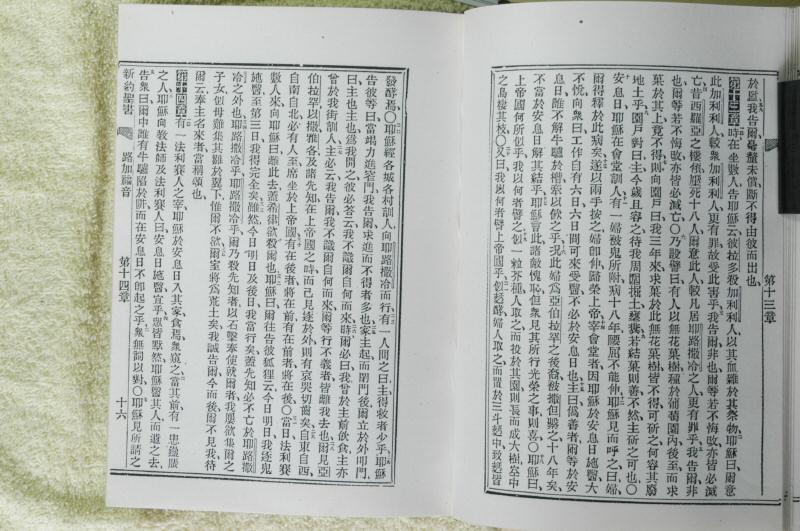 第十三章
於監我告爾毫釐未償斷不得由彼而出也
第十三章時在坐數人告耶穌云彼拉多殺加利利人以其血雜於其祭物耶穌曰爾意
此加利利人較衆加利利人更有罪故受此害乎我告爾非也爾等若不悔改亦皆必滅
亡昔西羅亞之樓傾壓死十八人爾意此人較凡居耶路撒冷之人更有罪乎我告爾非
也爾等若不悔改亦皆必滅亡〇乃設譬曰有人以無花菓樹種於葡萄園內後至而求
菓於其上竟不得則向園戶曰我三年來求菓於此無花菓樹皆不得可斫之何容其廢
地土乎園戶對曰主今歲且容之待我周圍掘土壅糞若結菓則善不然主斫之可也〇
安息日耶穌在會堂訓人有一婦被鬼所附病十八年腰屈不能伸耶穌見而呼之曰婦
爾得釋於此病矣遂以兩手按之婦卽伸歸榮上帝宰會堂者因耶穌於安息日施醫大
不悅向衆曰工作自有六日六日間可來受醫不必於安息日也主曰僞善者爾等於安
息日誰不解牛驢於槽牽以飲之乎況此婦爲亞伯拉罕之後裔被撒但縛之十八年矣
不當於安息日解其結乎耶穌言此諸敵愧恥但衆見其所行光榮之事則喜〇耶穌曰
上帝國何所似乎我以何者譬之似一粒芥種人取之而投於其園則長而成大樹空中
之鳥棲其枝〇又曰我以何者譬上帝國乎似麪酵婦人取之而置於三斗麪中致麪皆
發酵焉〇耶穌經各城各村訓人向耶路撒冷而行有一人問之曰主得救者少乎耶穌
告彼等曰當竭力進窄門我告爾求進而不得者多也家主起而閉門後爾立於外叩門
曰主也主也爲我開之彼必答云我不識爾自何而來時爾必曰我曾於主前飲食主亦
曾於我街訓人主必云我告爾我不識爾自何而來爾等行不義者皆離我去也爾見亞
伯拉罕以撒雅各及諸先知在上帝國之時而己見逐於外則有哀哭切齒矣自東自西
自南自北必有人至席坐於上帝國有在後者將在前有在前者將在後〇當日法利賽
數人來向耶穌曰離此去蓋希律欲殺爾也耶穌曰爾往告彼狐狸云今日明日我逐鬼
施醫至第三日我得完全矣雖然今日明日及後日我當行矣蓋先知必不亡於耶路撒
冷之外也耶路撒冷乎耶路撒冷乎爾乃殺先知者以石擊奉使就爾者我屢欲集爾之
子女似母雞集其雛於翼下惟爾不欲爾室將爲荒土矣我誠告爾今而後爾不見我待
爾云奉主名來者當稱頌也
第十四章有一法利賽人之宰耶穌於安息日入其家食焉衆窺之當其前有一患鼓脹
之人耶穌向教法師及法利賽人曰安息日施醫宜乎衆皆默然耶穌醫其人而遣之去
告衆曰爾中誰有牛驢陷於阱而在安息日不卽起之乎衆無詞以對〇耶穌見所請之
新約聖書 路加福音 第十四章 十六